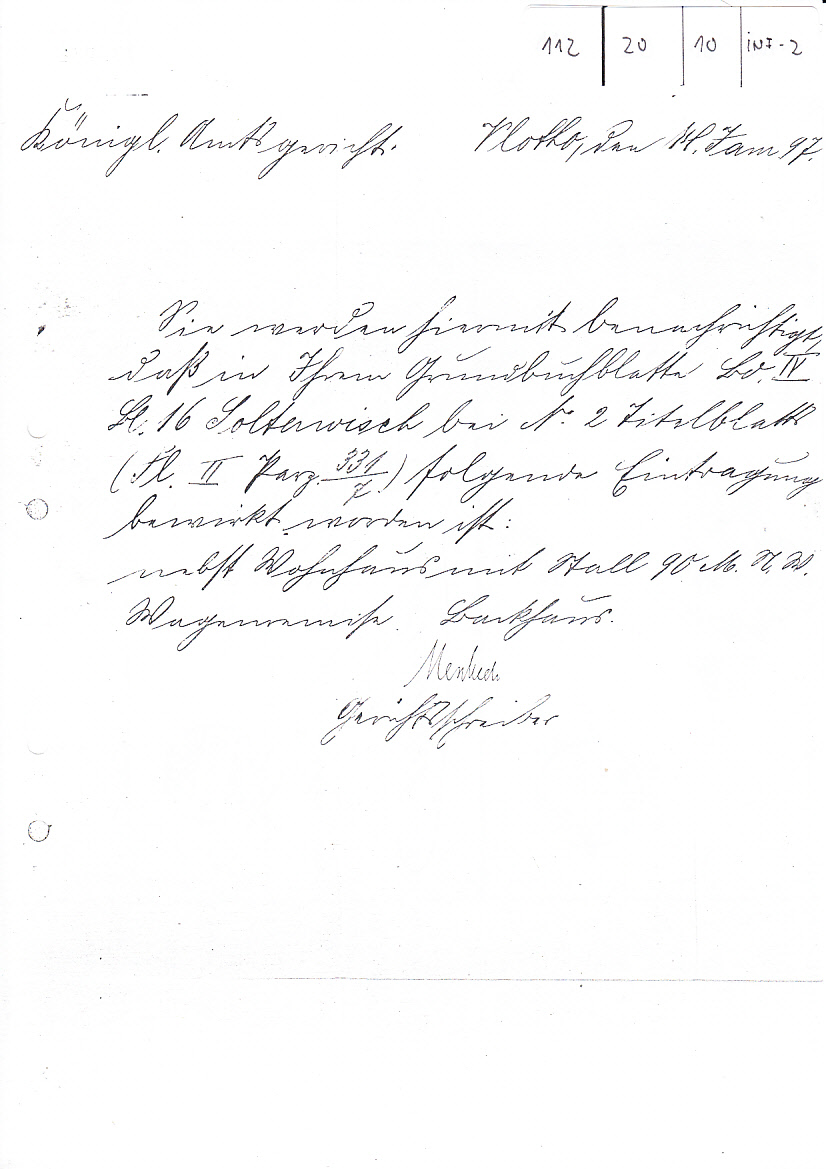 112 20 10 iNF-2
Königl. Amtsgericht. Vlotho, den Jan 97.
Sie werden hiermit benachrichtigt,
daß in Ihrem Grundbuchblatte Bd. IV
Bl. 16 Solterwisch bei N. 2 Titelblatts
(Fl. II Parz. 331/7.) folgende Eintragung
bewirkt worden ist:
nebst Wohnhaus mit Stall 90 M. N. W.
Wagenremise. Backhaus.
Gerichtsschreiber